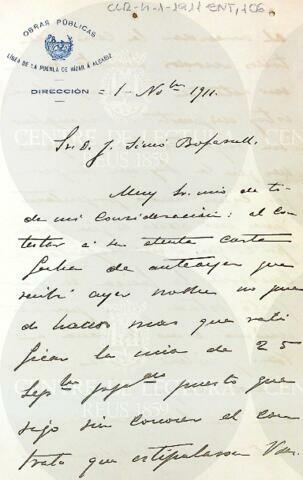 CLR-4-1-1911 ENT, 106
OBRAS PÚBLICAS
LÍNEA DE LA PUEBLA DE HÍJAR Á ALCAÑIZ
DIRECCIÓN = 1 - Nobre 1911.
Sr. D. J. Simó Bofarull.
Muy Sr. mío de to-
da mi consideración: al con
testar a su atenta carta
fecha de anteayer que
recibí ayer noche no pue
do hacer mas que rati
ficar la mia de 25
Sepbre ppdo puesto que
sigo sin conocer el con
trato que estipularon Vds.
CENTRE DE LECTURA
REUS 1859